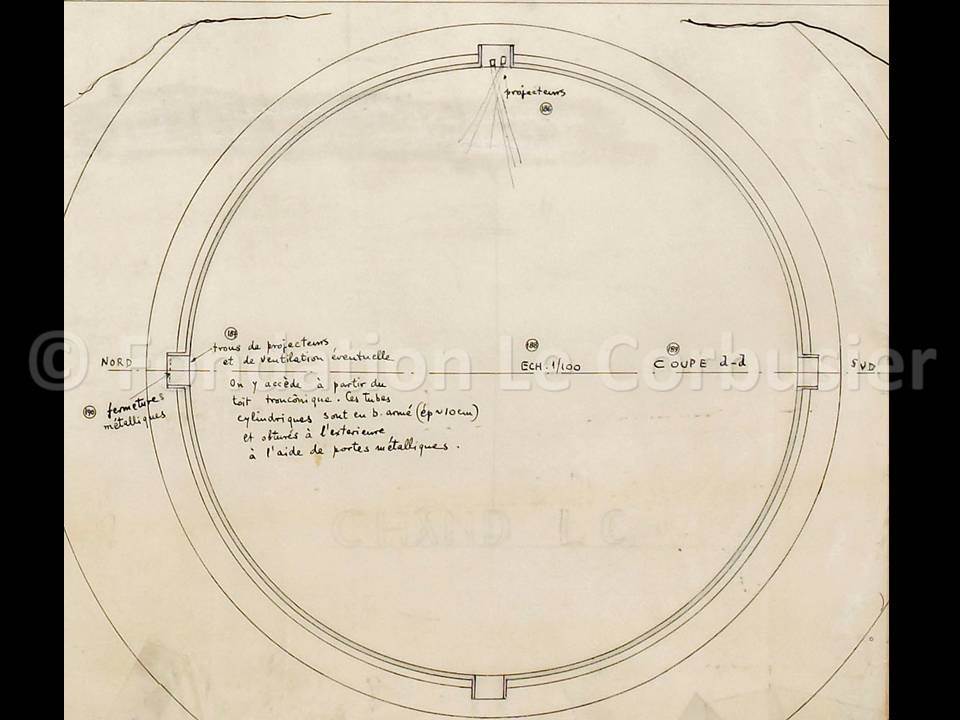 projecteurs
186
187
trous de projecteurs
et de ventilation éventuelle
On y accède à partir du
toit tronconique. Ces tubes
cylindriques sont en b. armé (ép ~ 10 cm)
et obturés à l'exterieure
à l'aide de portes métalliques.
NORD
188
ECH. 1/100
189
COUPE d-d
SVD
190
fermetures
métalliques
© Fondation Le Corbusier
CHAND LC